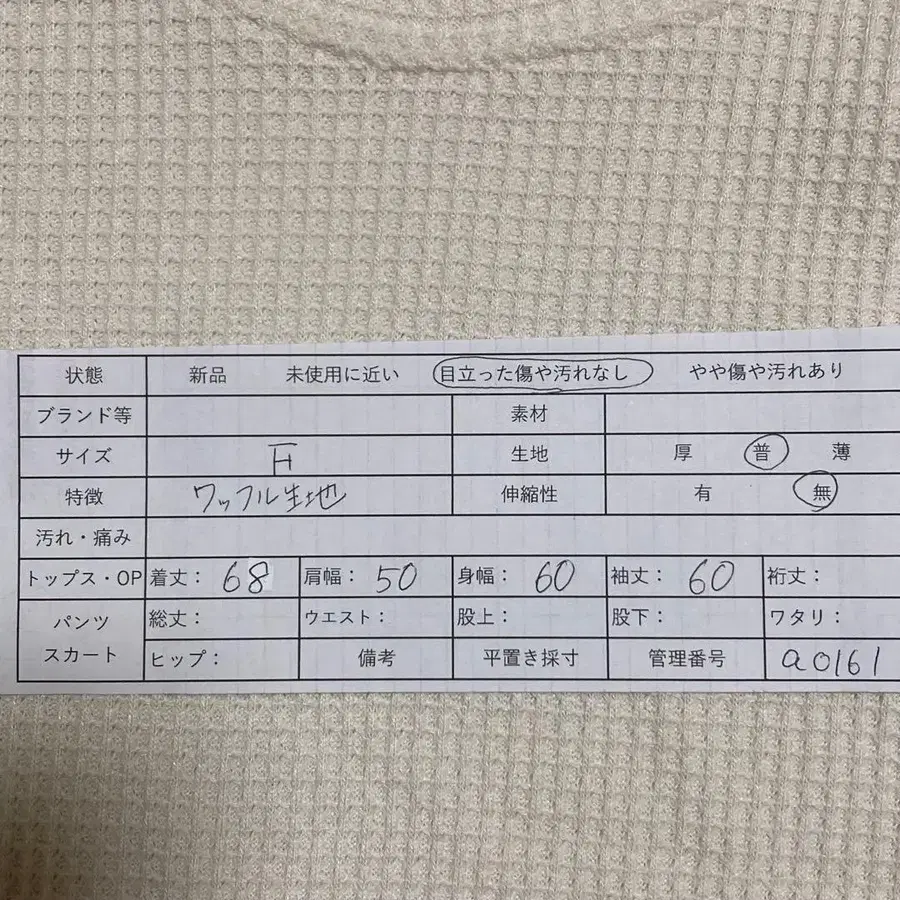 状態 新品 未使用に近い 目立った傷や汚れなし やや傷や汚れあり
ブランド等 素材
サイズ F 生地 厚 普 薄
特徴 ワッフル生地 伸縮性 有 無
汚れ・痛み
トップス・OP 着丈： 68 肩幅： 50 身幅： 60 袖丈： 60 裄丈：
パンツ 総丈： ウエスト： 股上： 股下： ワタリ：
スカート ヒップ： 備考 平置き採寸 管理番号 a0161